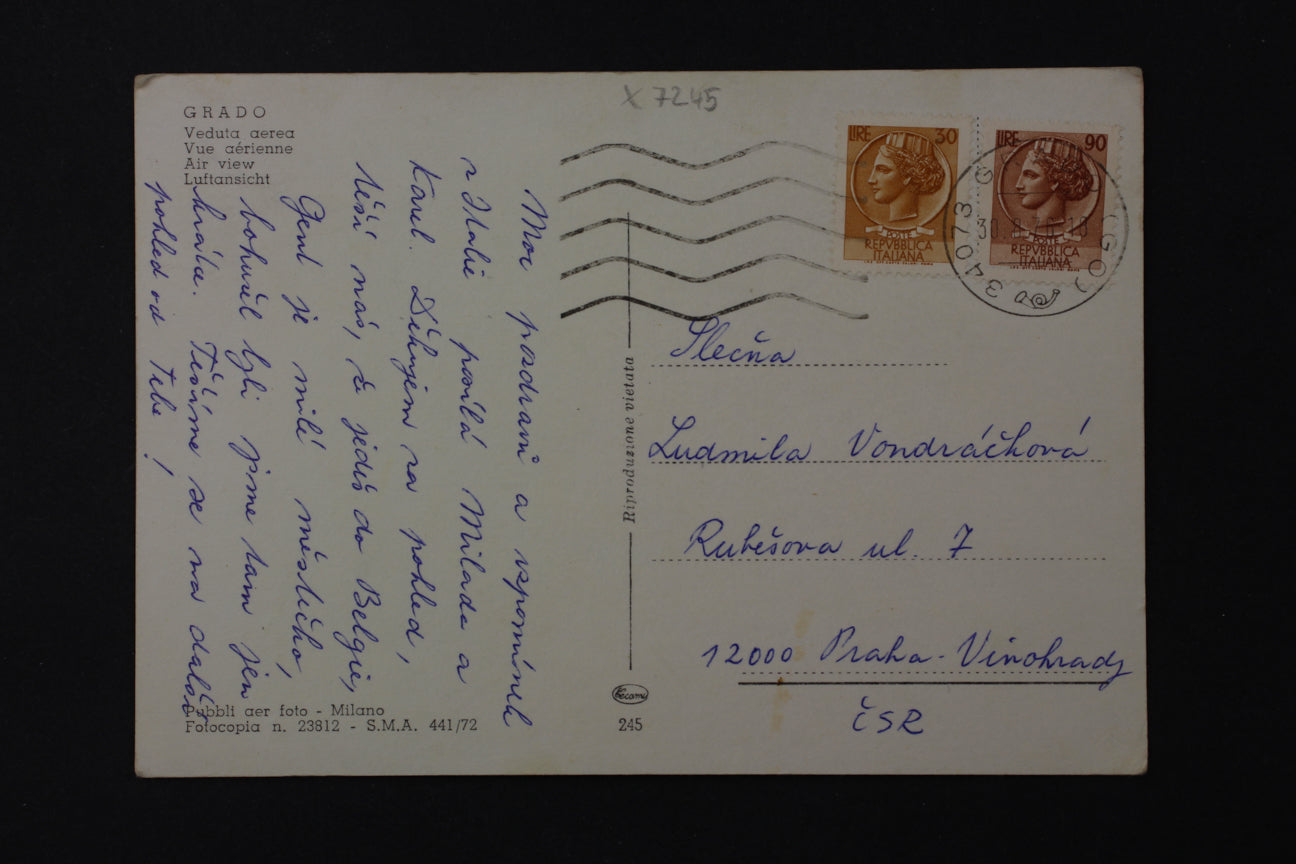 GRADO
Veduta aerea
Vue aérienne
Air view
Luftansicht
Moc pozdravů a vzpomínek
z Italie posílá Milada a
Karel. Děkujem za pohled,
těší nás, že jedeš do Belgie,
Gent je milé městečko,
bohužel byli jsme tam jen
krátce. Těšíme se na další
pohled od Tebe!
Pubbli aer foto - Milano
Fotocopia n. 23812 - S.M.A. 441/72
Riproduzione vietata
245
X 7245
LIRE 30
POSTE
REPVBBLICA
ITALIANA
LIRE 90
POSTE
REPVBBLICA
ITALIANA
34073
Slečna
Ludmila Vondráčková
Rubešova ul. 7
12000 Praha - Vinohrady
ČSR